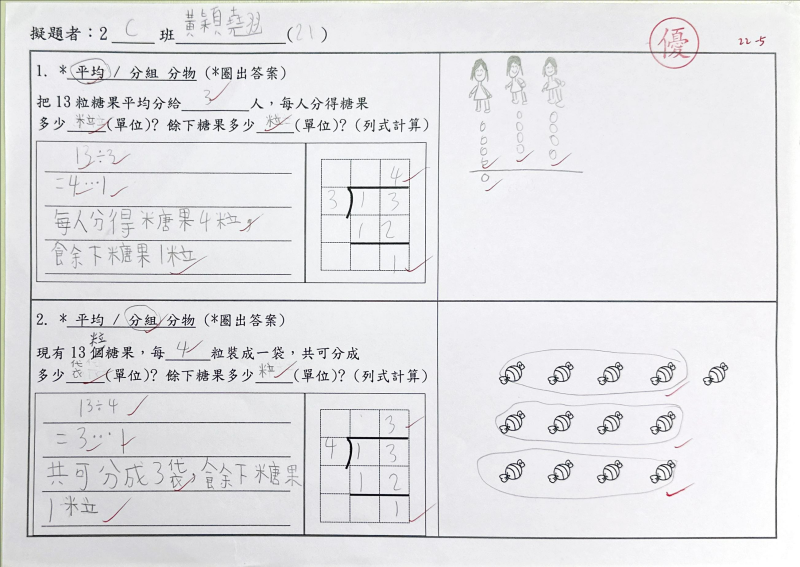 擬題者：2 C 班 黃穎堯 (21)
優
22-5
1. * 平均 / 分組 分物 (*圈出答案)
把 13 粒糖果平均分給 3 人，每人分得糖果
多少 粒 (單位)? 餘下糖果多少 粒 (單位)? (列式計算)
13÷3
=4…1
每人分得米唐果4粒，
食余下糖果1粒
4
3 1 3
1 2
1
2. * 平均 / 分組 分物 (*圈出答案)
粒
現有 13 個糖果，每 4 粒裝成一袋，共可分成
多少 袋 (單位)? 餘下糖果多少 粒 (單位)? (列式計算)
13÷4
=3…1
共可分成3袋，食余下糖果
1粒
3
4 1 3
1 2
1